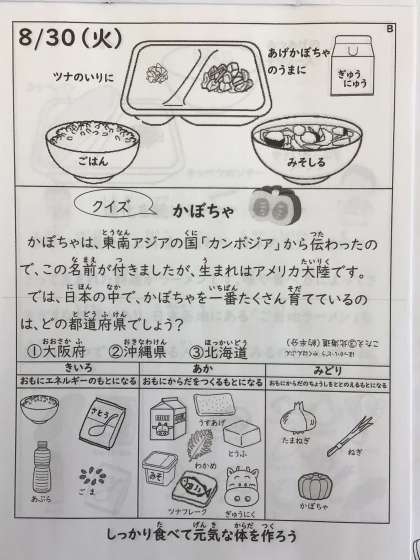 8/30(火)
B
ツナのいりに
あげかぼちゃ
のうまに
ぎゅう
にゅう
ごはん
みそしる
クイズ
かぼちゃ
かぼちゃは、東南アジアの国「カンボジア」から伝わったの
で、この名前が付きましたが、生まれはアメリカ大陸です。
では、日本の中で、かぼちゃを一番たくさん育てているの
は、どの都道府県でしょう?
①大阪府 ②沖縄県 ③北海道
こたえ③北海道(約半分)
きいろ
あか
みどり
おもにエネルギーのもとになる
おもにからだをつくるもとになる
おもにからだのちょうしをととのえるもとになる
さとう
うすあげ
とうふ
たまねぎ
ねぎ
みそ
わかめ
あぶら
ごま
ツナフレーク
ぎゅうにく
かぼちゃ
しっかり食べて元気な体を作ろう